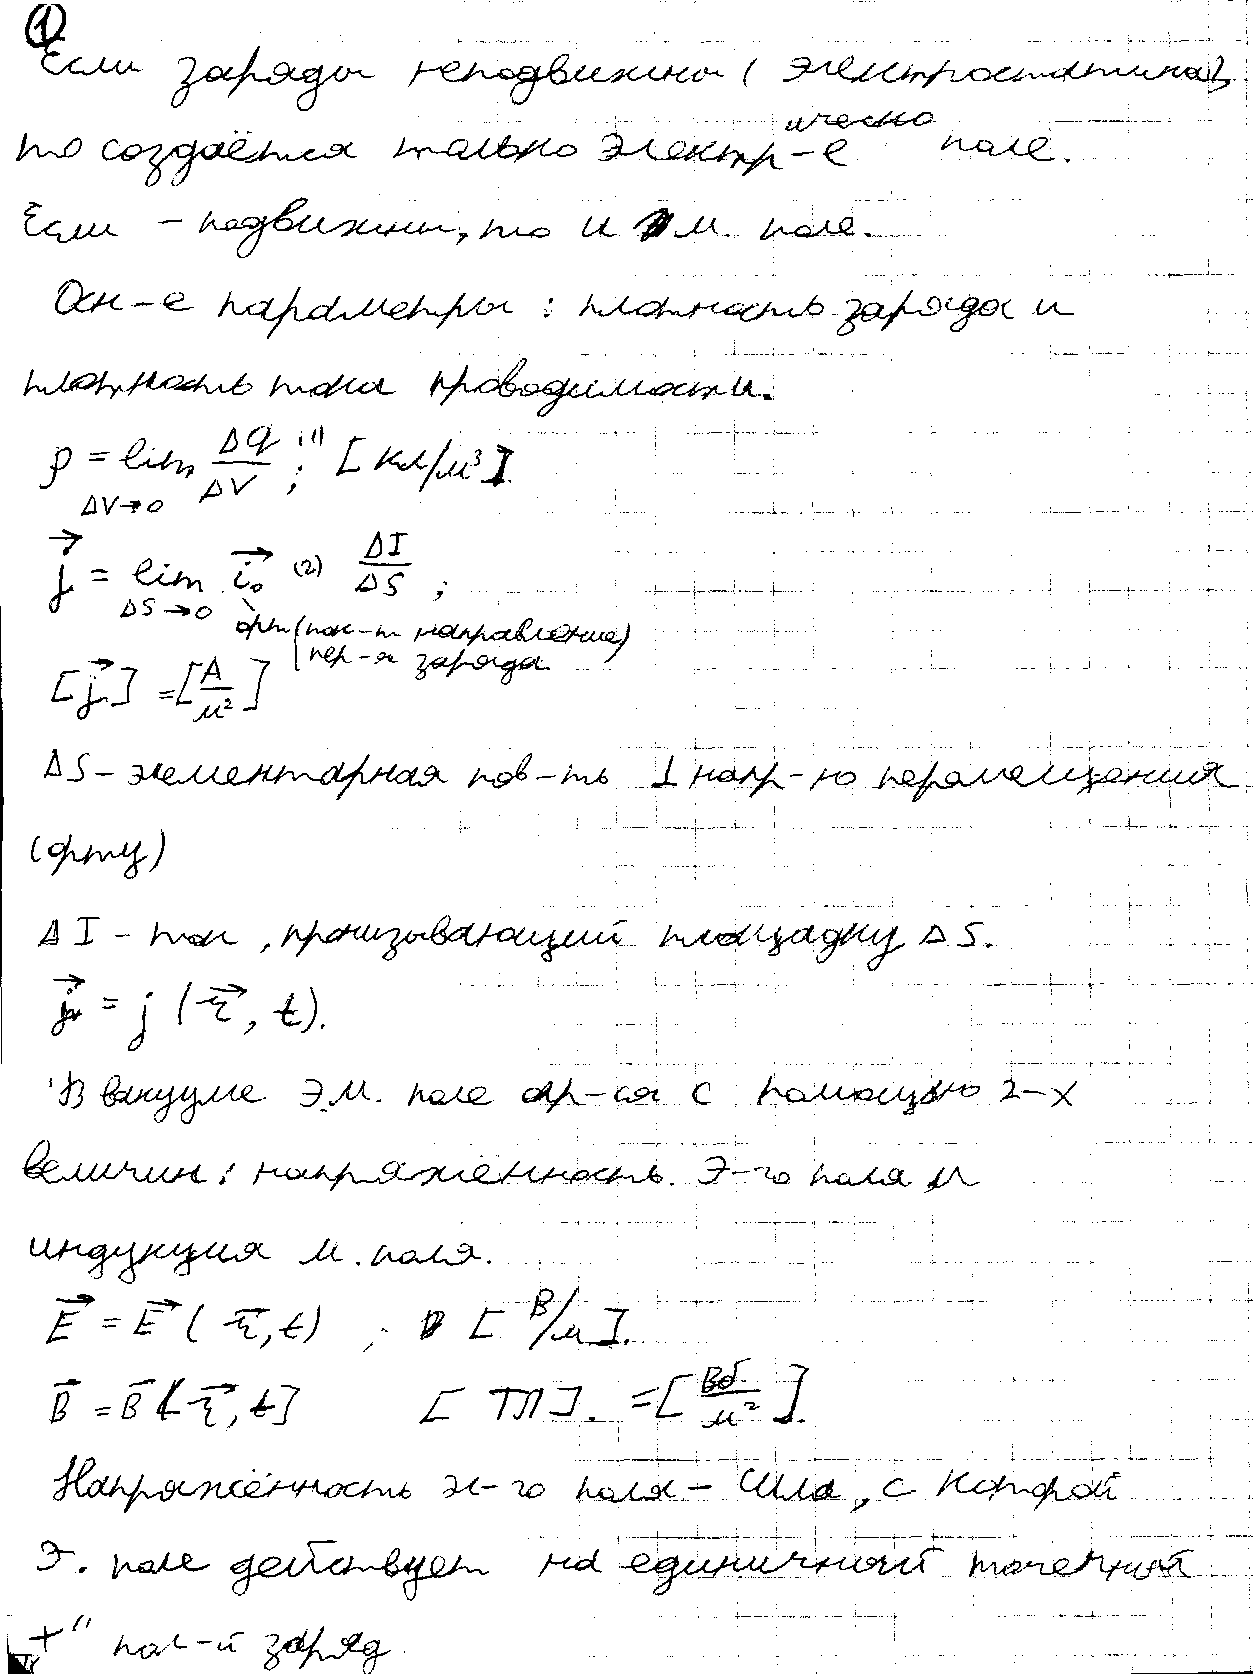 ①
Если заряды неподвижны (электростатика),
то создаётся только электр-е ическо поле.
Если – подвижны, то и м. поле.
Осн-е параметры: плотность заряда и
плотность тока проводимости.
ρ = lim ΔV→0 Δq/ΔV (1); [Кл/м³].
j⃗ = lim ΔS→0 i⃗₀ (2) ΔI/ΔS;
орт (пок-т направление)
пер-я заряда.
[j⃗] = [А/м²]
ΔS – элементарная пов-ть ⊥ напр-ю перемещения
(орту)
ΔI – ток, пронизывающий площадку ΔS.
j⃗ = j (r⃗, t).
В вакууме Э.М. поле опр-ся с помощью 2-х
величин: напряжённость. Э-го поля и
индукция м. поля.
E⃗ = E⃗ (r⃗, t) ; [В/м].
B⃗ = B⃗ (r⃗, t] [Тл]. = [Вб/м²].
Напряжённость эл-го поля – сила, с которой
Э. поле действует на единичный точечный
+" пол-й заряд